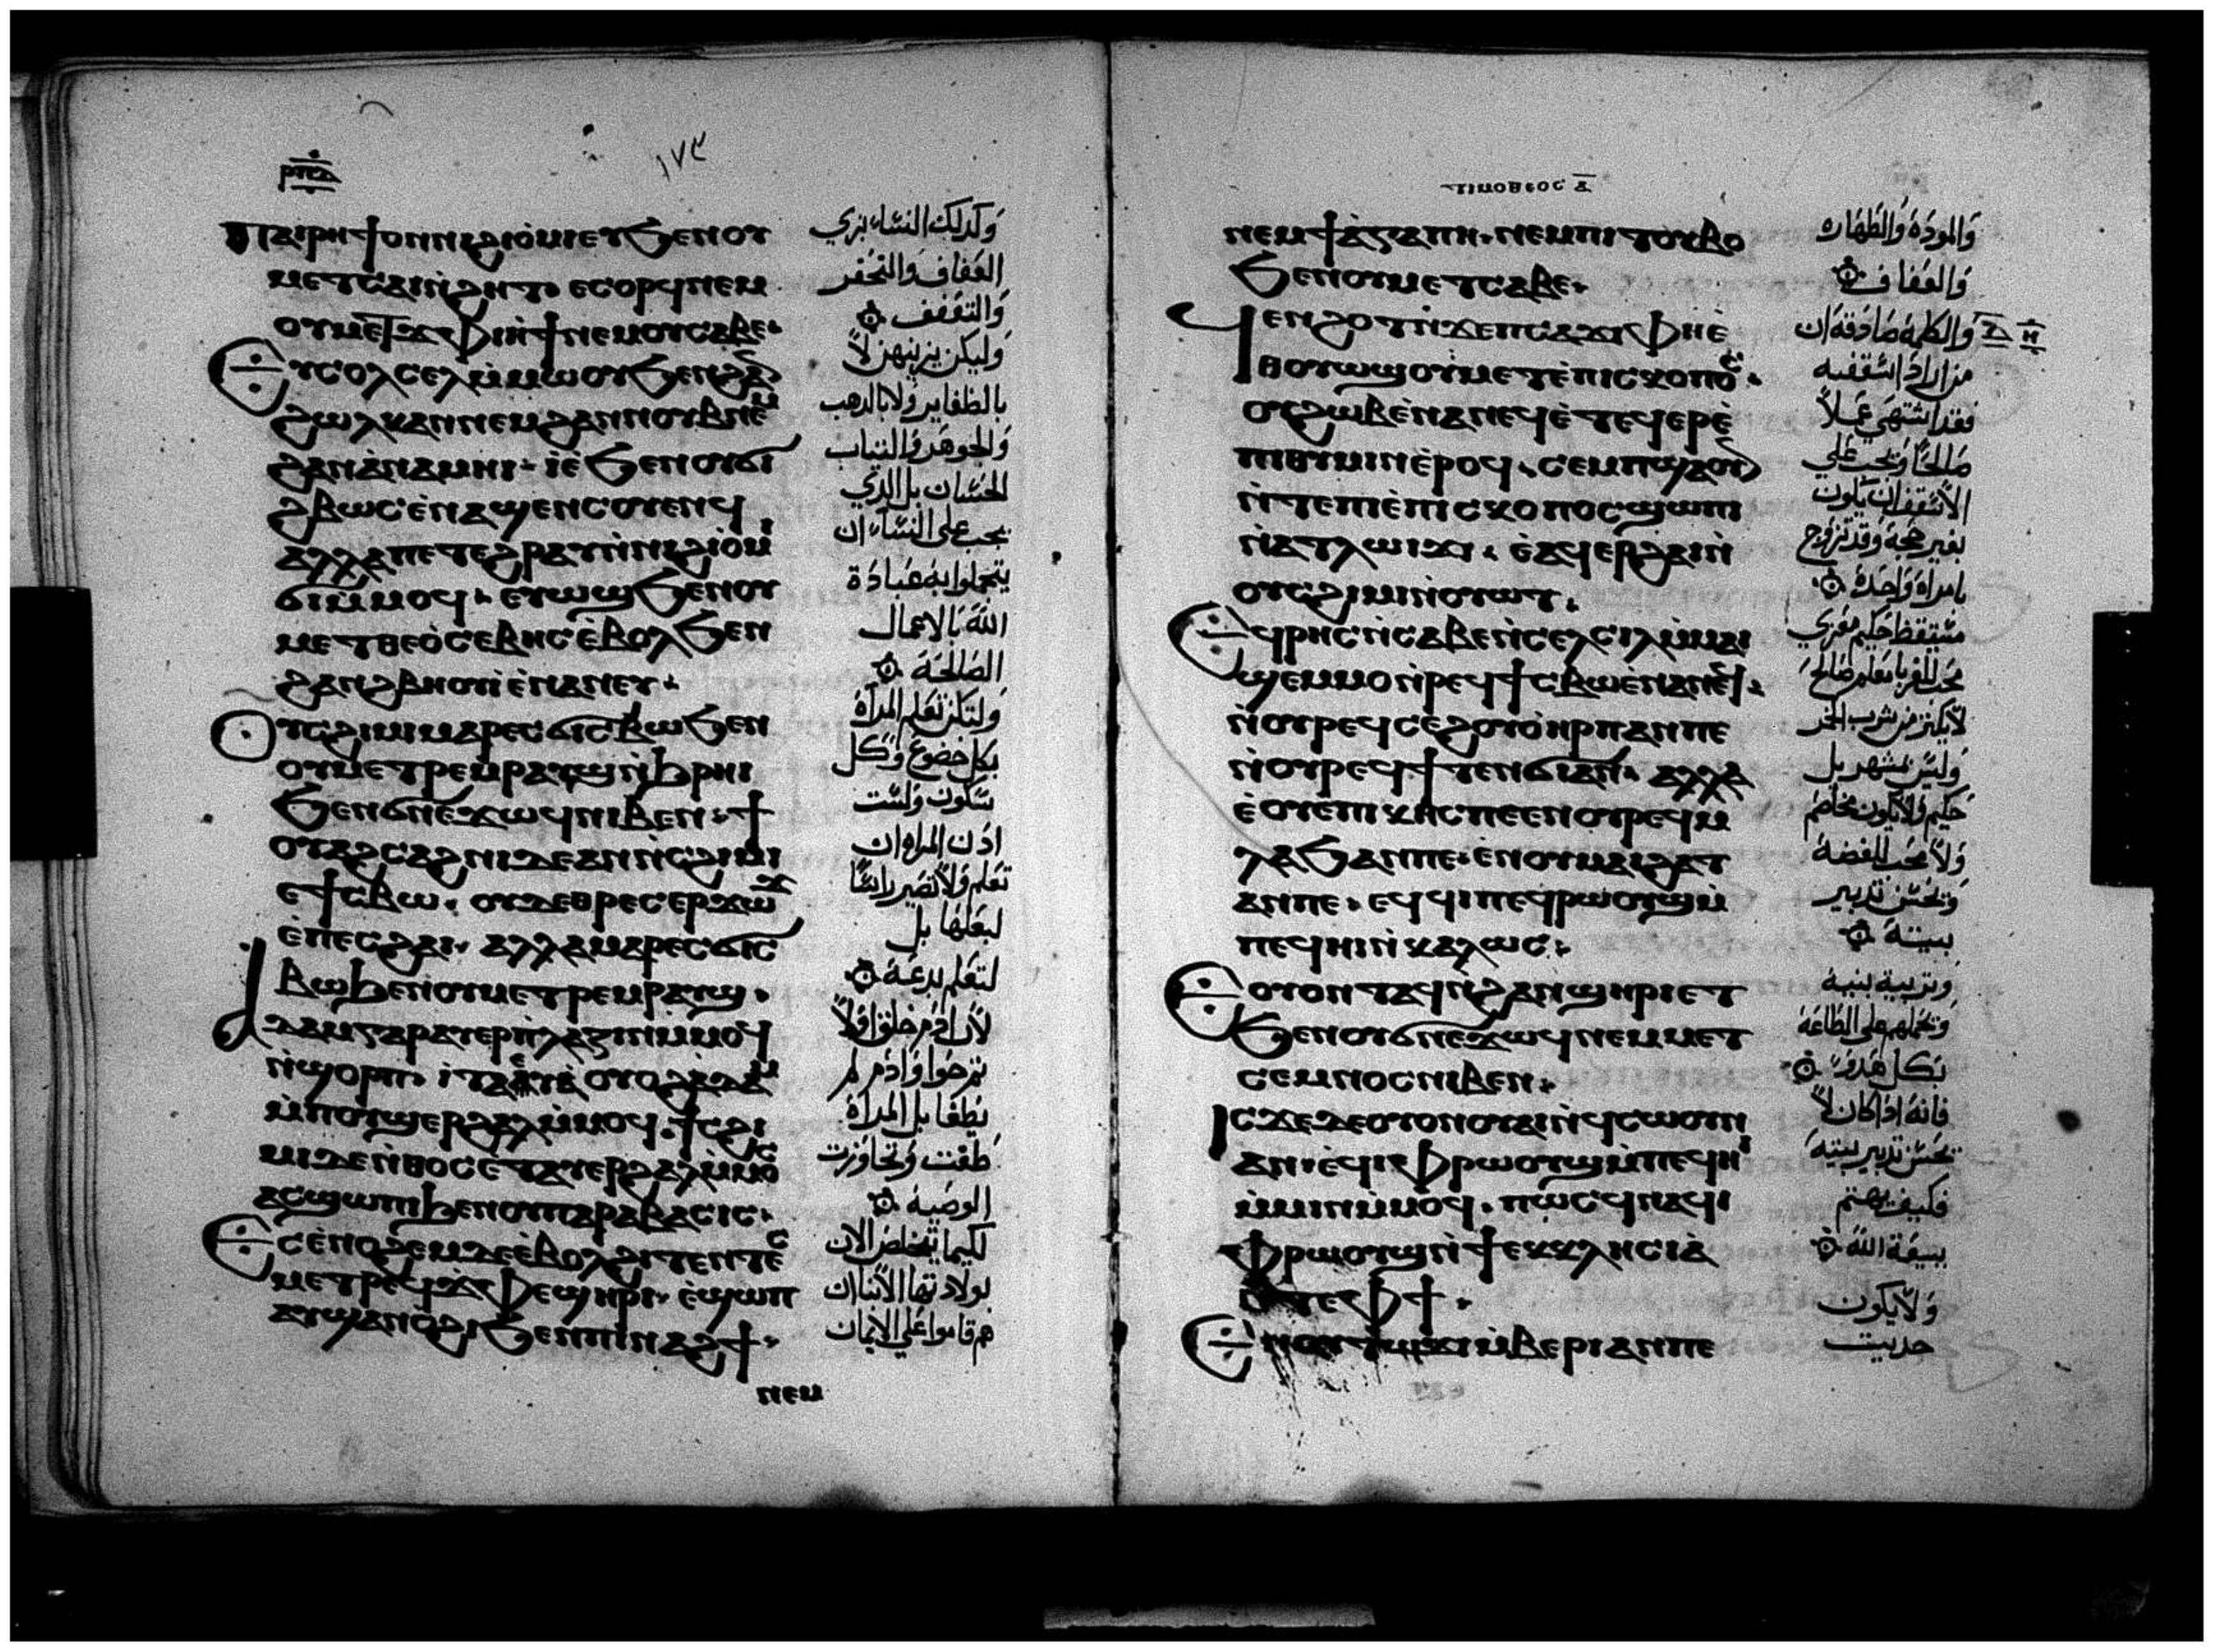 ⲣⲡⲇ
١٧٣
ⲡⲁⲓⲣⲏϯ ⲟⲛ ⲛⲓϩⲓⲟⲙⲓ ⲉⲩϧⲉⲛ ⲟⲩ
ⲙⲉⲧⲥⲁⲓⲛϩⲏⲧ ⲉⲥⲟⲣϥ ⲛⲉⲙ
ⲉⲩⲥⲟⲗⲥⲉⲗ ⲙⲙⲱⲟⲩ ϧⲉⲛ ϩⲁⲛ
ϩⲱⲗⲕ ⲁⲛ ⲛⲉⲙ ϩⲁⲛⲛⲟⲩⲃ ⲛⲉⲙ
ϩⲁⲛⲁⲛⲁⲙⲏⲓ ⲓⲉ ϧⲉⲛ ⲟⲩϭⲓ
ϩⲃⲱⲥ ⲉⲛⲁϣⲉⲛⲥⲟⲩⲉⲛϥ
ⲁⲗⲗⲁ ⲡⲉⲧⲉϩⲣⲁⲩ ⲛⲛⲓϩⲓⲟⲙⲓ
ϭⲓ ⲙⲙⲟϥ ⲉⲩⲱϣ ϧⲉⲛ ⲟⲩ
ⲙⲉⲧⲑⲉⲟⲥⲉⲃⲏⲥ ⲉⲃⲟⲗ ϧⲉⲛ
ϩⲁⲛϩⲃⲏⲟⲩⲓ ⲉⲛⲁⲛⲉⲩ
ⲟⲩⲥϩⲓⲙⲓ ⲙⲁⲣⲉⲥϭⲓⲥⲃⲱ ϧⲉⲛ
ⲟⲩⲙⲉⲧⲣⲉⲙⲣⲁⲩϣ ⲛϧⲣⲏⲓ
ϧⲉⲛ ϭⲛⲉϫⲱϥ ⲛⲓⲃⲉⲛ ϯ
ⲟⲩⲁϩⲥⲁϩⲛⲓ ⲇⲉ ⲁⲛ ⲛⲥϩⲓⲙⲓ
ⲉϯⲥⲃⲱ ⲟⲩⲇⲉ ⲑⲣⲉⲥⲉⲣϫⲱϫ
ⲉⲡⲉⲥϩⲁⲓ ⲁⲗⲗⲁ ⲙⲁⲣⲉⲥϭⲓⲥ
ⲃⲱ ϧⲉⲛ ⲟⲩⲙⲉⲧⲣⲉⲙⲣⲁⲩϣ
ⲁⲇⲁⲙ ⲅⲁⲣ ⲁⲩⲉⲣⲡⲗⲁⲍⲓⲛ ⲙⲙⲟϥ
ⲛϣⲟⲣⲡ ⲓⲧⲁ ⲉⲩⲁ ⲟⲩⲟϩ ⲁⲇⲁⲙ
ⲙⲡⲟⲩϣⲉⲣϩⲁⲗ ⲙⲙⲟϥ ϯⲥϩⲓ
ⲙⲓ ⲇⲉ ⲛⲑⲟⲥ ⲉⲧⲁⲩⲉⲣϩⲁⲗ ⲙⲙⲟⲥ
ⲁⲥϣⲱⲡⲓ ϧⲉⲛ ⲟⲩⲡⲁⲣⲁⲃⲁⲥⲓⲥ
ⲉⲥⲉⲛⲟϩⲉⲙ ⲇⲉ ⲉⲃⲟⲗ ϩⲓⲧⲉⲛ ⲧⲉⲥ
ⲙⲉⲧⲣⲉϥϫⲫⲉ ϣⲏⲣⲓ ⲉϣⲱⲡ
ⲁⲩϣⲁⲛⲟϩⲓ ϧⲉⲛ ⲡⲓⲛⲁϩϯ
ⲛⲉⲙ
وكذلك النساء بزي
العفاف والتخفر
والتعفف
وليكن يزينهن لا
بالظفاير ولا بالدهب
والجوهر والتياب
الحسان بل الذي
يجب على النساء ان
يتحلوا به عبادة
الله بالاعمال
الصالحة
ولتكن تعلم المراة
بكل خضوع وكل
سكون ولست
اذن المراه ان
تعلم ولا تصير راسا
لبعلها بل
لتعلم بدعة
لان ادم خلق اولا
ثم حوا وادم لم
يطغا بل المراة
طغت وتجاوزت
الوصية
لكيما تتخلص الان
بولادتها الابنا ان
هم قاموا على الايمان
ⲧⲓⲙⲟⲑⲉⲟⲥ ⲁ
ⲛⲉⲙ ϯⲁⲅⲁⲡⲏ ⲛⲉⲙ ⲡⲓⲧⲟⲩⲃⲟ
ϧⲉⲛ ⲟⲩⲙⲉⲧⲥⲁⲃⲉ
ϥⲉⲛϩⲟⲧ ⲛϫⲉ ⲡⲥⲁϫⲓ ⲫⲏ ⲉ
ⲑⲟⲩⲱϣ ⲟⲩⲙⲉⲧⲉⲡⲓⲥⲕⲟⲡⲟⲥ
ⲟⲩϩⲱⲃ ⲉⲛⲁⲛⲉϥ ⲉⲧⲉϥⲉⲣⲉ
ⲡⲓⲑⲩⲙⲓⲛ ⲉⲣⲟϥ ⲥⲉⲙⲡϣⲁ ⲟⲩⲛ
ⲛⲧⲉ ⲡⲓⲉⲡⲓⲥⲕⲟⲡⲟⲥ ϣⲱⲡⲓ
ⲛⲁⲧⲗⲱⲓϫⲓ ⲉⲁϥⲉⲣϩⲁⲓ ⲛ
ⲟⲩⲥϩⲓⲙⲓ ⲛⲟⲩⲱⲧ
ⲉϥⲣⲏⲥ ⲛⲥⲁⲃⲉ ⲛⲥⲉⲗⲥⲓⲗ ⲙⲙⲁⲓ
ϣⲉⲙⲙⲟ ⲛⲣⲉϥϯⲥⲃⲱ ⲉⲛⲁⲛⲉϥ
ⲛⲟⲩⲣⲉϥⲥⲉϩⲟⲩⲟⲏⲣⲡ ⲁⲛ ⲡⲉ
ⲛⲟⲩⲣⲉϥϯⲧⲉⲛ ϭⲓ ⲁⲛ ⲁⲗⲗⲁ
ⲉⲟⲩⲉⲡⲓⲕⲏⲥ ⲡⲉ ⲉⲛⲟⲩⲣⲉϥⲙ
ⲗⲁϧ ⲁⲛ ⲡⲉ ⲉⲛⲟⲩⲙⲁⲓϩⲁⲧ
ⲁⲛ ⲡⲉ ⲉϥϥⲓ ⲡⲉϥⲣⲱⲟⲩϣ ⲙ
ⲡⲉϥⲏⲓ ⲛⲕⲁⲗⲱⲥ
ⲉⲟⲩⲟⲛⲧⲁϥ ⲛϩⲁⲛϣⲏⲣⲓ ⲉⲩ
ϧⲉⲛ ⲟⲩϭⲛⲉϫⲱϥ ⲛⲉⲙ ⲙⲉⲧ
ⲥⲉⲙⲛⲟⲥ ⲛⲓⲃⲉⲛ
ⲓⲥϫⲉ ⲇⲉ ⲟⲩⲟⲛ ⲟⲩⲁⲓ ⲛϥⲥⲱⲟⲩⲛ
ⲁⲛ ⲉϥⲓ ⲫⲣⲱⲟⲩϣ ⲙⲡⲉϥⲏⲓ
ⲙⲙⲓⲛ ⲙⲙⲟϥ ⲡⲱⲥ ϥⲛⲁϥⲓ
ⲫⲣⲱⲟⲩϣ ⲛϯⲉⲕⲕⲗⲏⲥⲓⲁ
ⲛⲧⲉ ⲫϯ
ⲃⲉⲣⲓ ⲁⲛ ⲡⲉ
والمودة والطهاره
والعفاف
والكلمة صادقة ان
من اراد اسقفيه
فقد اشتهى عملا
صالحا ويجب على
الاسقف ان يكون
بغير حجة وقد تزوج
بامراه واحدة
متيقظ حكيم مقري
محب للغربا معلم صالح
لا يكتر من شرب الخمر
وليس بل
حكيم ولا يكون مخاصم
ولا محب للفضة
ويحسن تدبير
بيته
وتربية بنيه
ويحملهم على الطاعة
بكل هدو
فانه اذا كان لا
يحسن تدبير بيته
فكيف يهتم
ببيعة الله
ولا يكون
حديث